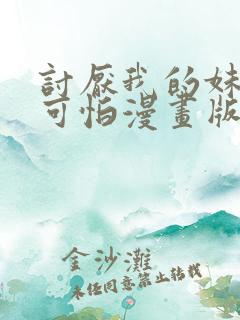 討厭我的妹
可怕漫畫版
金沙灘
未经同意禁止转载